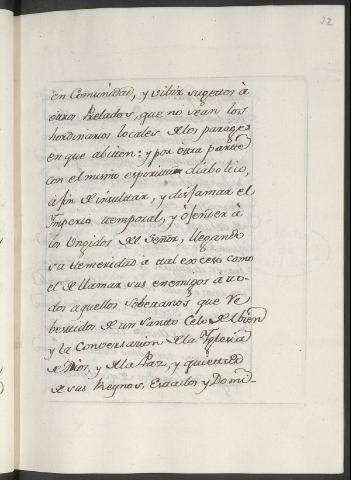 22
en Comunidad, y vibir sugettos à
ottros Prelados, que no sean los
hordinarios locales de los parages
en que abitten: y por otra partte
con el mismo espiritu diabolico,
à fin de insultar, y disfamar el
Imperio ttemporal, y ofender à
los Ungidos del Señor, llegando
su ttemeridad à ttal exceso como
el de llamar sus enemigos à tto-
dos aquellos soberanos que Ve
bestidos de un Santto Celo del bien
y la Conversarion de la Yglesia
de Dios, y de la Paz, y quiettud
de sus Reynos, Estados y Domi-